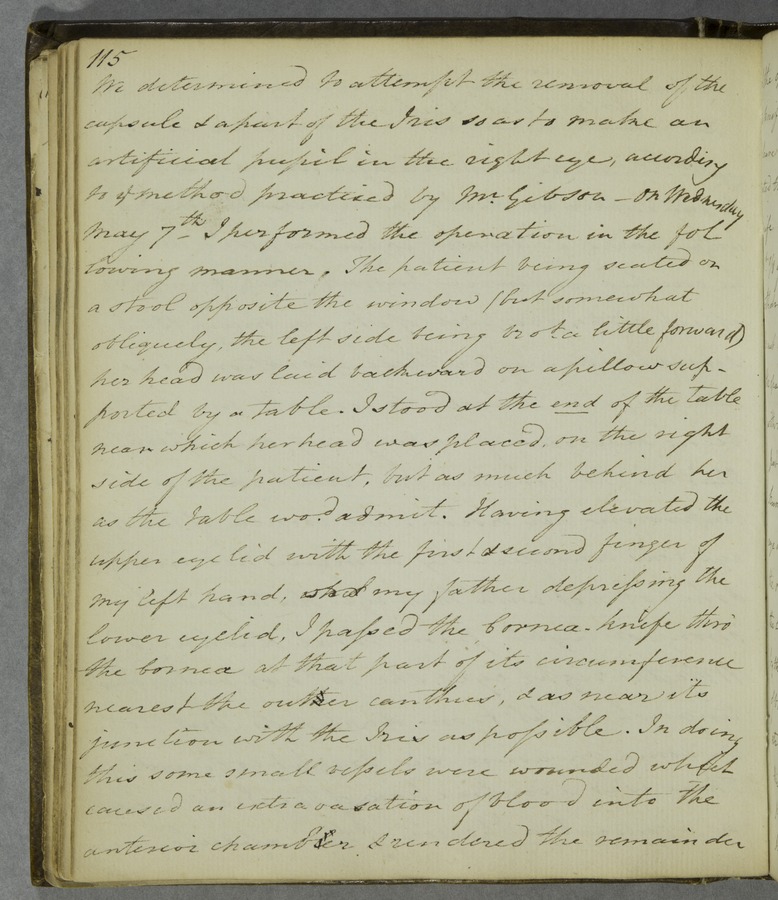 115
We determined to attempt the removal of the
capsule & a part of the Iris so as to make an
artificial pupil in the right eye, according
to ye method practised by Mr. Gibson - On Wednesday
May 7th I performed the operation in the fol
lowing manner. The patient being seated on
a stool opposite the window (but somewhat
obliquely, the left side being brot. a little forward)
her head was laid backward on a pillow sup-
ported by a table. I stood at the end of the table
near which her head was placed, on the right
side of the patient, but as much behind her
as the table wod. admit. Having elevated the
upper eye lid with the first & second finger of
my left hand, my father depressing the
lower eyelid, I passed the Cornea-knife thro'
the Cornea at that part of its circumference
nearest the outer canthus, & as near its
junction with the Iris as possible. In doing
this some small vessels were wounded which
caused an extravasation of blood into the
anterior chamber & rendered the remainder